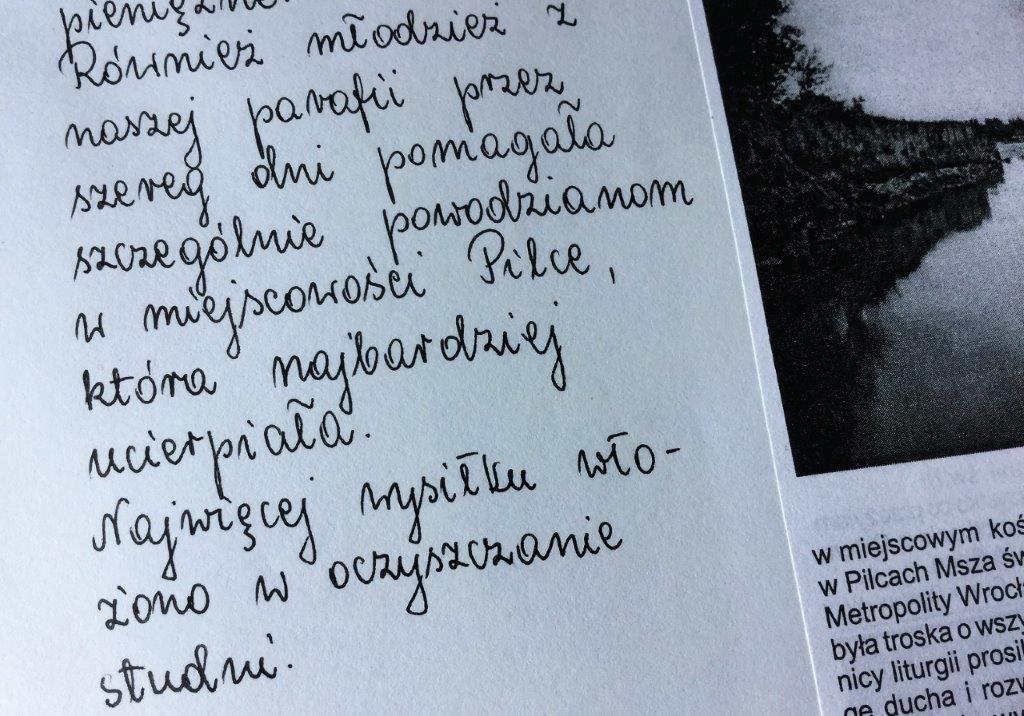 Również młodzież z
naszej parafii przez
szereg dni pomagała
szczególnie powodzianom
w miejscowości Pilce,
która najbardziej
ucierpiała.
Najwięcej wysiłku wło-
żono w oczyszczanie
studni.
w miejscowym koś
w Pilcach Msza św
Metropolity Wrocł
była troska o wszy
nicy liturgii prosil
gę ducha i rozw